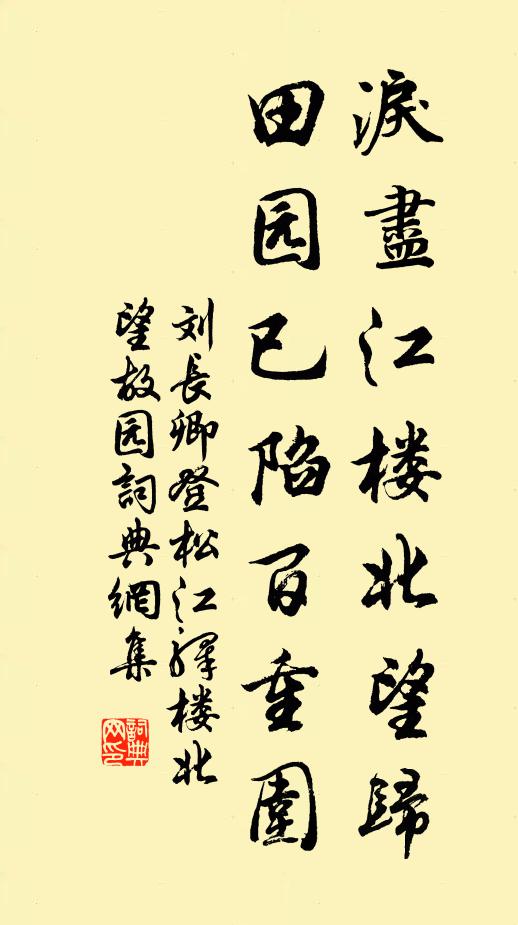 淚盡江楼北望歸
田园已陷百重圍
刘長卿登松江驛楼北
望故园詞典網集
詞典
网印